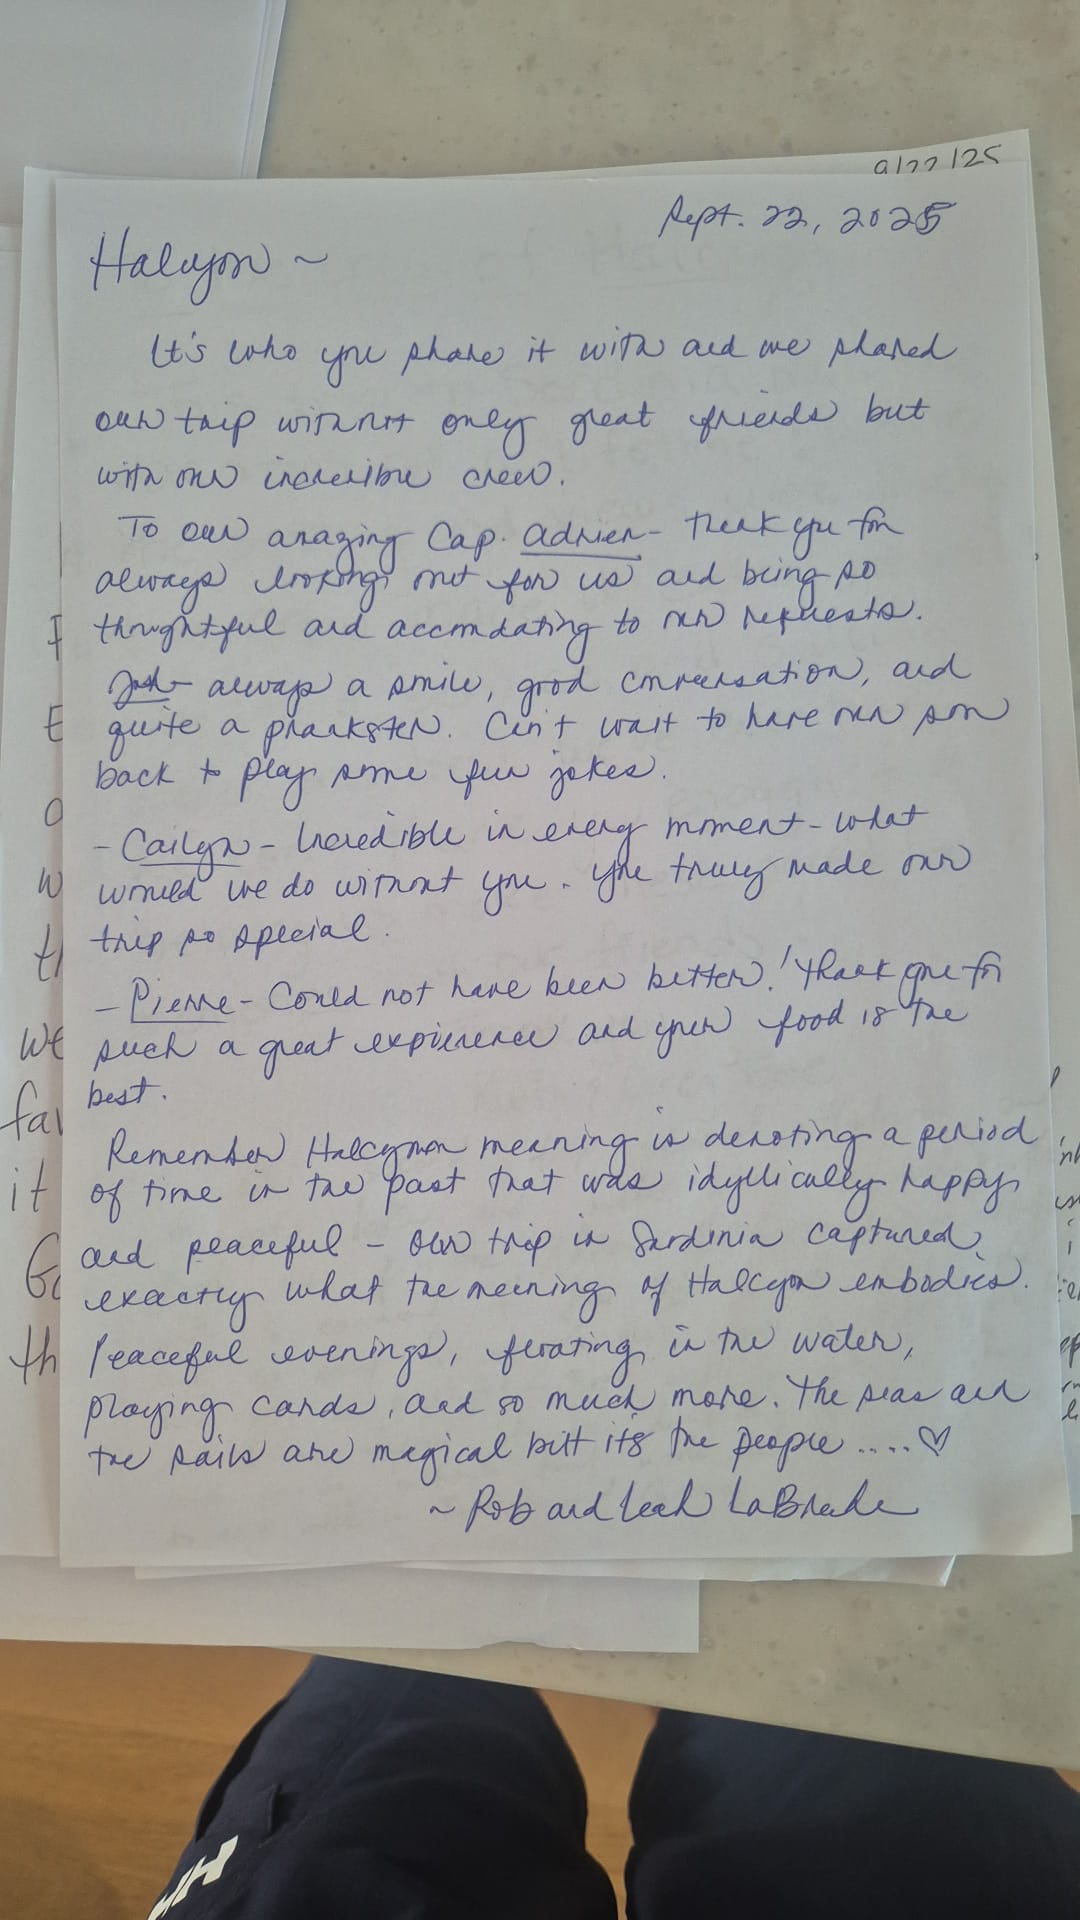 9/22/25
Sept. 22, 2025
Halcyon ~
It's who you share it with and we shared
our trip with not only great friends but
with our incredible crew.
To our amazing Cap. Adrien - thank you for
always looking out for us and being so
thoughtful and accomdating to our requests.
Josh - always a smile, good conversation, and
quite a prankster. Can't wait to have our son
back to play some fun jokes.
- Cailyn - Incredible in every moment - what
would we do without you. You truly made our
trip so special.
- Pierre - Could not have been better! Thank you for
such a great expierence and your food is the
best.
Remember Halcyon meaning is denoting a period
of time in the past that was idyllically happy
and peaceful - our trip in Sardinia captured
exactly what the meening of Halcyon embodies.
Peaceful evenings, floating in the water,
playing cards, and so much more. The seas and
the sails are magical but its the people .... ♡
~ Rob and Leah LaBrecke
we
fav
it
th
HH